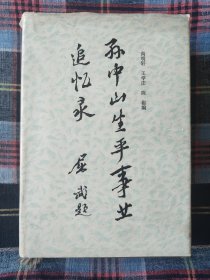 尚明轩 王学庄 陈崧编
孙中山生平事业
追忆录
屈武题